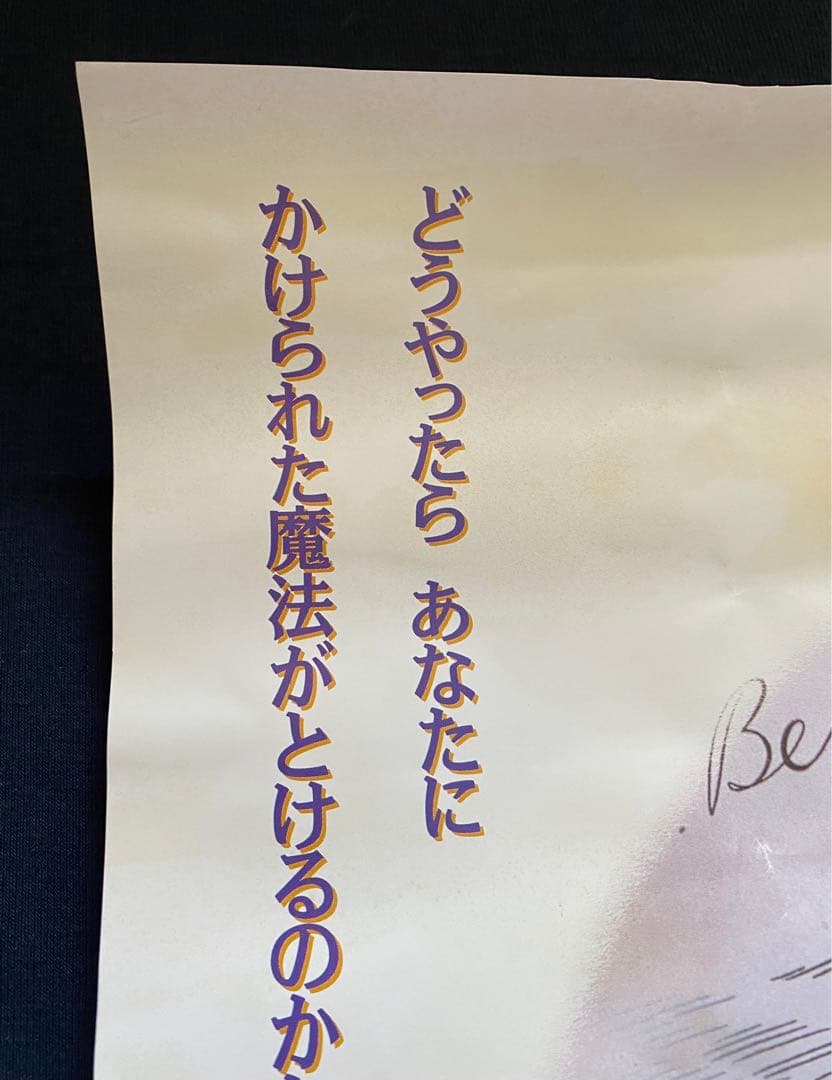 どうやったら あなたに
かけられた魔法がとけるのか
Be